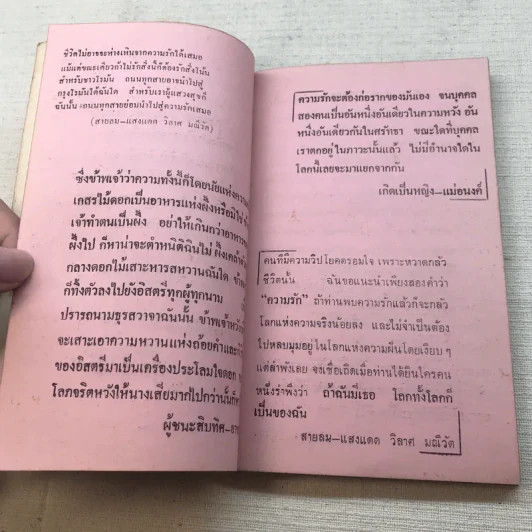 ชีวิตไม่อาจจะห่างเหินจากความรักได้เสมอ
แม้แต่ขณะเดียวถ้าไม่รักสิ่งนี้ก็ต้องรักสิ่งโน้น
สำหรับชาวโรมัน ถนนทุกสายอาจนำไปสู่
กรุงโรมได้ฉันใด สำหรับเราผู้แสวงสุขก็
ฉันนั้น ถนนทุกสายย่อมนำไปสู่ความรักเสมอ
(สายลม-แสงแดด วิลาศ มณีวัต)
ซึ่งข้าพเจ้าว่าความทั้งนี้ก็โดยนัยแห่งความ
เกสรไม้ดอกเป็นอาหารแห่งผึ้งหรือมิใช่
เจ้าทำตนเป็นผึ้ง อย่าให้เกินกว่าอาหาร
ผึ้งไป ก็หาน่าจะตำหนิติฉินไม่ ผึ้งเคล้า
กลางดอกไม้เสาะหารสหวานฉันใด ข้า
ก็ทิ้งตัวลงไปยังอิสตรีทุกผู้ทุกนาม
ปรารถนามธุรสวาจาฉันนั้น ข้าพเจ้าหวัง
จะเสาะเอาความหวานแห่งถ้อยคำและ
ของอิสตรีมาเป็นเครื่องประโลมใจดอก
โลภจริตหวังให้นางเสียมากไปกว่านั้น
ผู้ชนะสิบทิศ-ยา
ความรักจะต้องก่อรากของมันเอง จนบุคคล
สองคนเป็นอันหนึ่งอันเดียวในความหวัง อัน
หนึ่งอันเดียวกันในศรัทธา ขณะใดที่บุคคล
เราตกอยู่ในภาวะนั้นแล้ว ไม่มีอำนาจใดใน
โลกนี้เลยจะมาแยกจากกัน
เกิดเป็นหญิง-แม่อนงค์
คนที่มีความวิปโยคตรอมใจ เพราะหวาดกลัว
ชีวิตนั้น ฉันขอแนะนำเพียงสองคำว่า
"ความรัก" ถ้าท่านพบความรักแล้วก็จะกลัว
โลกแห่งความจริงน้อยลง และไม่จำเป็นต้อง
ไปหลบมุมอยู่ในโลกแห่งความฝันโดยเงียบ ๆ
แต่ลำพังเลย จงเชื่อเถิดเมื่อท่านได้ยินใครคน
หนึ่งรำพึงว่า ถ้าฉันมีเธอ โลกทั้งโลกก็
เป็นของฉัน
สายลม-แสงแดด วิลาศ มณีวัต